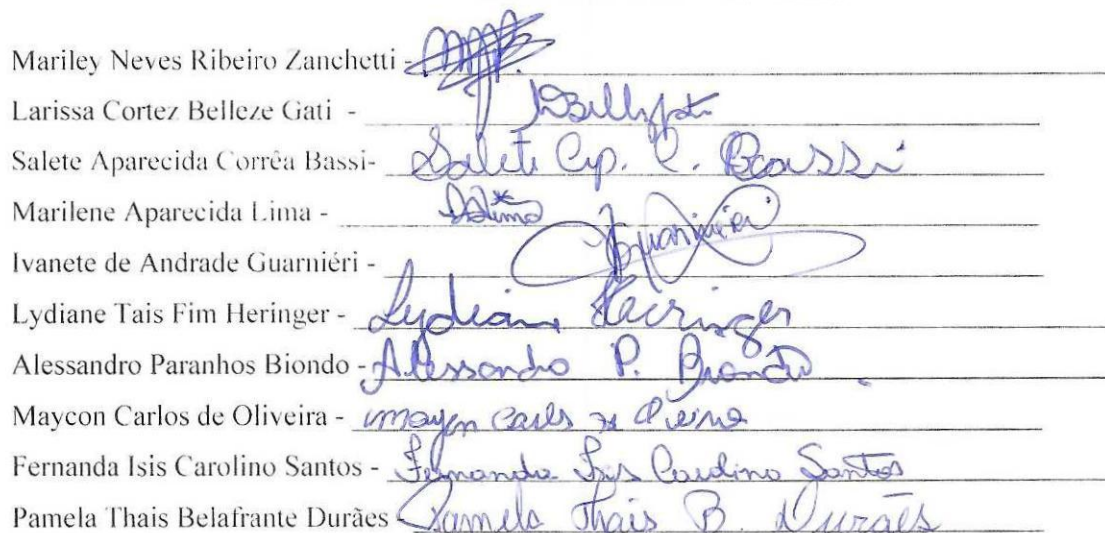 Mariley Neves Ribeiro Zanchetti -
Larissa Cortez Belleze Gati -
Salete Aparecida Corrêa Bassi- Salete Ap. C. Bassi
Marilene Aparecida Lima -
Ivanete de Andrade Guarniéri - Guarniéri
Lydiane Tais Fim Heringer - Lydiane Heringer
Alessandro Paranhos Biondo - Alessandro P. Biondo
Maycon Carlos de Oliveira - Maycon Carlos de Oliveira
Fernanda Isis Carolino Santos - Fernanda Isis Carolino Santos
Pamela Thais Belafrante Durães - Pamela Thais B. Durães